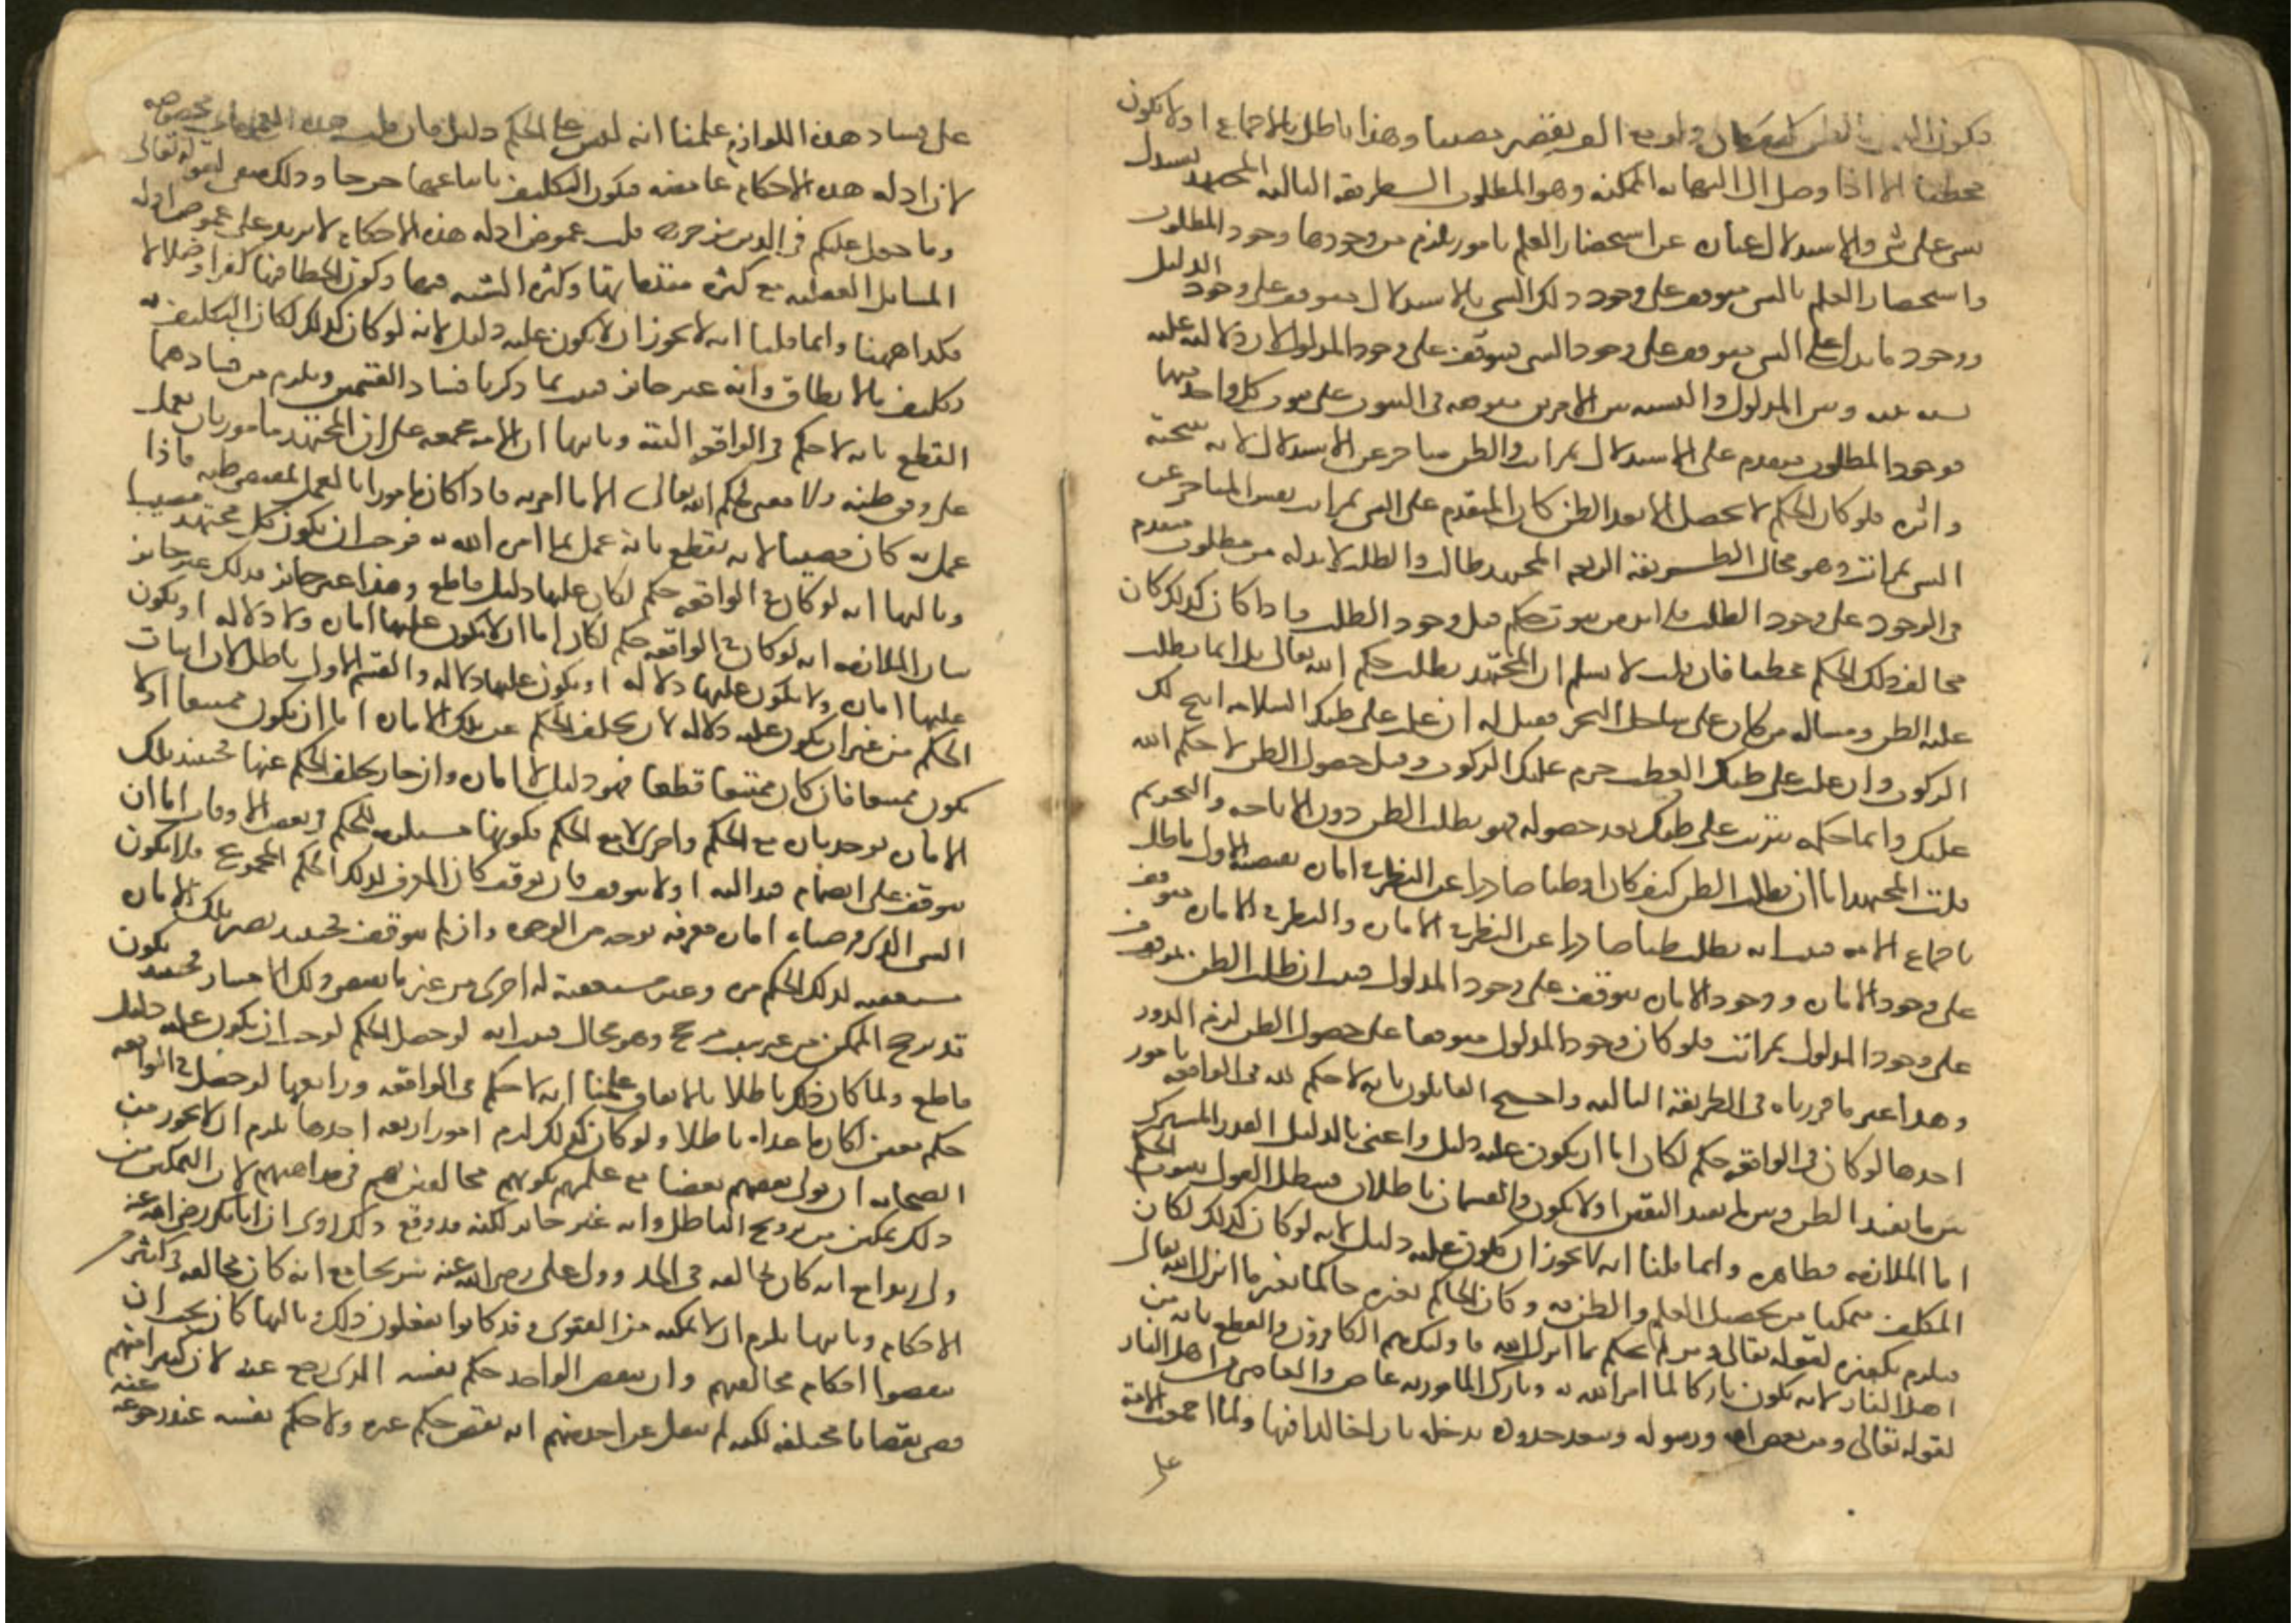 محطئا الا اذا وصل الى النهاية الممكنة وهو المطلوب الطريقة الثالثة المجتهد يستدل
بشي على شي والاستدلال عبارة عن استحضار العلم بامور يلزم من وجودها وجود المطلوب
واستحضار العلم بالشي يتوقف على وجود ذلك الشي فالاستدلال يتوقف على وجود الدليل
ووجود ما يدل على الشي يتوقف على وجود الشي يتوقف على وجود المدلول لان دلالته عليه
نسبة بينه وبين المدلول والنسبة بين الامرين متوقفة في الثبوت على ثبوت كل واحد منهما
فوجود المطلوب متقدم على الاستدلال بمراتب والظن متاخر عن الاستدلال لانه نتيجته
واثره فلو كان الحكم لا يحصل الا بعد الظن كان المتقدم على الشي بمراتب نفس المتاخر عن
الشي بمراتب وهو محال الطريقة الرابعة المجتهد طالب والطلب لا بد له من مطلوب متقدم
في الوجود على وجود الطلب فلا بد من ثبوت حكم قبل وجود الطلب فاذا كان كذلك كان
مخالف ذلك الحكم مخطئا فان قلت لا نسلم ان المجتهد يطلب حكم الله تعالى بل انما يطلب
غلبة الظن ومثاله من كان على ساحل البحر فقيل له ان غلب على ظنك السلامة ابيح لك
الركوب وان غلب على ظنك العطب حرم عليك الركوب وقبل حصول الظن لا حكم لله
عليك وانما حكمه يترتب على ظنك بعد حصوله فهو يطلب الظن دون الاباحة والتحريم
قلت المجتهد اما ان يطلب الظن كيف كان او ظنا صادرا عن النظر في امارة تقتضيه الاول باطل
باجماع الامة فثبت انه يطلب ظنا صادرا عن النظر في الامارة والنظر في الامارة متوقف
على وجود الامارة ووجود الامارة يتوقف على وجود المدلول فثبت ان طلب الظن موقوف
على وجود المدلول بمراتب فلو كان وجود المدلول متوقفا على حصول الظن لزم الدور
وهذا عين ما قررناه في الطريقة الثالثة واحتج القائلون بانه لا حكم لله في الواقعة بامور
احدها لو كان في الواقعة حكم لكان اما ان يكون عليه دليل واعني بالدليل القدر المشترك
بين ما يفيد الظن وبين ما يفيد اليقين او لا يكون والقسمان باطلان فبطل القول بثبوت الحكم
اما الملازمة فظاهرة وانما قلنا انه لا يجوز ان يكون عليه دليل لانه لو كان كذلك لكان
المكلف متمكنا من تحصيل العلم والظن به وكان الحاكم بغيره حاكما بغير ما انزل الله تعالى
فيلزم تكفيره لقوله تعالى ومن لم يحكم بما انزل الله فاولئك هم الكافرون والقطع بانه من
اهل النار لانه يكون تاركا لما امر الله به وتارك المامور به عاص والعاصي من اهل النار
لقوله تعالى ومن يعص الله ورسوله ويتعد حدوده يدخله نارا خالدا فيها ولما اجمعت الامة
على
على فساد هذه اللوازم علمنا انه ليس على الحكم دليل فان قلت هذه العمومات مخصوصة
لان ادلة هذه الاحكام غامضة فيكون التكليف باتباعها حرجا وذلك منفي لقوله تعالى
وما جعل عليكم في الدين من حرج قلت غموض ادلة هذه الاحكام لا يزيد على غموض ادلة
المسائل العقلية مع كثرة مقدماتها وكثرة الشبه فيها وكون الخطا فيها كفرا وضلالا
فكذا هاهنا وانما قلنا انه لا يجوز ان لا يكون عليه دليل لانه لو كان كذلك لكان التكليف به
تكليف بما لا يطاق وانه غير جائز فثبت بما ذكرنا فساد القسمين ويلزم من فسادهما
القطع بانه لا حكم في الواقعة البتة وثانيها ان الامة مجمعة على ان المجتهد مامور بان يعمل
على وفق ظنه ولا معنى لحكم الله تعالى الا ما امر به فاذا كان مامورا بالعمل بمقتضى ظنه فاذا
عمل به كان مصيبا لانه يقطع بانه عمل بما امر الله به فوجب ان يكون كل مجتهد مصيبا
وثالثها انه لو كان في الواقعة حكم لكان عليها دليل قاطع وهذا غير جائز فذلك غير جائز
بيان الملازمة انه لو كان في الواقعة حكم لكان اما ان لا يكون عليها امارة ولا دلالة او يكون
عليها امارة ولا يكون عليها دلالة او يكون عليها دلالة والقسم الاول باطل لان اثبات
الحكم من غير ان يكون عليه دلالة لان تخلف الحكم عن تلك الامارة اما ان يكون ممتنعا او لا
يكون ممتنعا فان كان ممتنعا قطعا فهو دليل لا امارة وان جاز تخلف الحكم عنها فحينئذ تلك
الامارة توجد تارة مع الحكم واخرى لا مع الحكم فكونها مستلزمة للحكم في بعض الاوقات اما ان
يتوقف على انضمام قيد اليه او لا يتوقف فان توقف كان المعرف لذلك الحكم المجموع فلا يكون
الشي الذي فرضناه امارة معرفة بوجه من الوجوه وان لم يتوقف فحينئذ تصير تلك الامارة
مستعقبة لذلك الحكم مرة وغير مستعقبة له اخرى من غير ما يقتضي ذلك الامتياز فحينئذ يكون
قد ترجح الممكن من غير سبب مرجح وهو محال فثبت انه لو حصل الحكم لوجب ان يكون عليه دليل
قاطع ولما كان ذلك باطلا بالاتفاق علمنا انه لا حكم في الواقعة ورابعها لو حصل في الواقعة
حكم معين لكان ما عداه باطلا ولو كان كذلك لزم امور اربعة احدها يلزم ان لا يجوز من
الصحابة ان يولي بعضهم بعضا مع علمهم بكونهم مخالفين لهم في مذاهبهم لان التمكين من
ذلك تمكين من ترويج الباطل وانه غير جائز لكنه قد وقع ذلك روي ان ابا بكر رضي الله عنه
ولى زيدا مع انه كان يخالفه في الجد وولى علي رضي الله عنه شريحا مع انه كان مخالفه في كثير من
الاحكام وثانيها يلزم ان لا يمكنه من الفتوى وقد كانوا يفعلون ذلك ثالثها كان يجب ان
ينقضوا احكام مخالفيهم وان ينقض الواحد حكم نفسه الذي رجع عنه لان كثيرا منهم
قضى بقضايا مختلفة لكنه لم ينقل عن احد منهم انه نقض حكم غيره ولا حكم نفسه عند رجوعه عنه